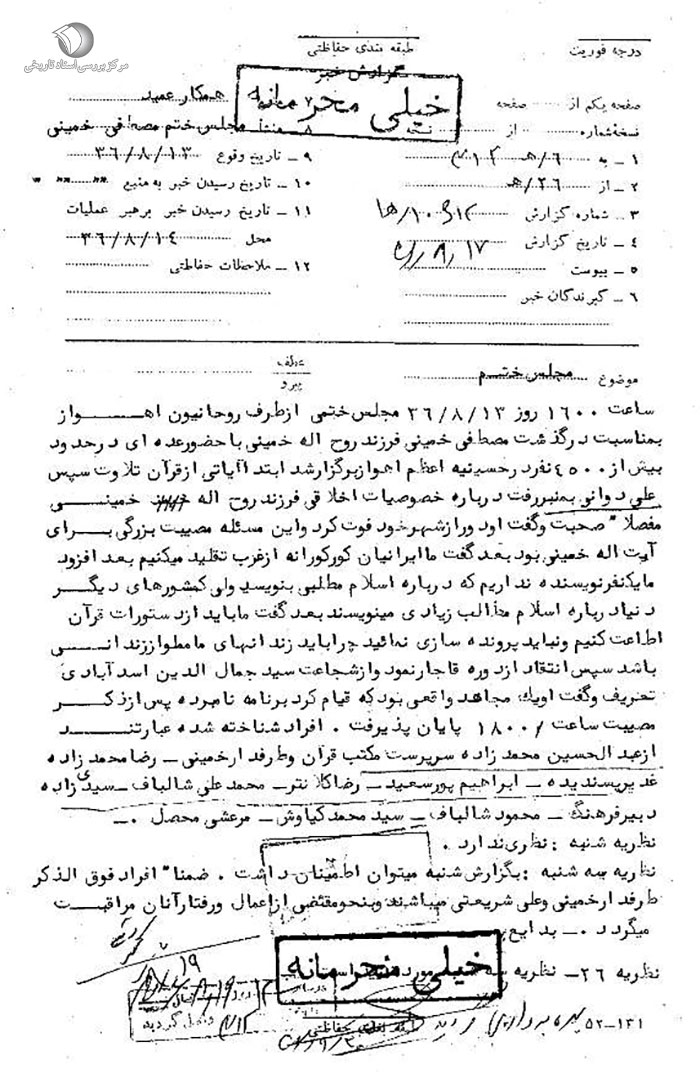 مرکز بررسی اسناد تاریخی
درجه فوریت
طبقه بندی حفاظتی
گزارش خبر
خیلی محرمانه
صفحه یکم از صفحه
نسخه شماره از نسخه
۱ - به ۶/هـ ۳۱۲
۲ - از ۲۶/هـ
۳ - شماره گزارش
۴ - تاریخ گزارش
۵ - پیوست
۶ - گیرندگان خبر
۷ همکار عمید
۸ - منشأ مجلس ختم مصطفی خمینی
۹ - تاریخ وقوع ۳۶/۸/۱۳
۱۰ - تاریخ رسیدن خبر به منبع " " "
۱۱ - تاریخ رسیدن خبر برهبر عملیات
محل ۳۶/۸/۱۴
۱۲ - ملاحظات حفاظتی
موضوع مجلس ختم
عطف
پیرو
ساعت ۱۶۰۰ روز ۳۶/۸/۱۳ مجلس ختمی ازطرف روحانیون اهواز
بمناسبت درگذشت مصطفی خمینی فرزند روح اله خمینی با حضورعده ای درحدود
بیش از ۴۵۰۰ نفرد رحسینیه اعظم اهوازبرگزارشد ابتدا آیاتی ازقرآن تلاوت سپس
علی دوانی بمنبررفت درباره خصوصیات اخلاقی فرزند روح اله خمینی
مفصلا" صحبت وگفت اود ورازشهرخود فوت کرد واین مسئله مصیبت بزرگی برای
آیت اله خمینی بود بعد گفت ما ایرانیان کورکورانه ازغرب تقلید میکنیم بعد افزود
ما یکنفرنویسنده نداریم که درباره اسلام مطلبی بنویسد ولی کشورهای دیگر
دنیا درباره اسلام مطالب زیادی مینویسند بعد گفت ماباید ازدستورات قرآن
اطاعت کنیم ونباید پرونده سازی نمائید چراباید زندانهای مامطواززندانی
باشد سپس انتقاد ازدوره قاجارنمود وازشجاعت سید جمال الدین اسدآبادی
تعریف وگفت اویک مجاهد واقعی بودکه قیام کرد برنامه نامبرده پس ازذکر
مصیبت ساعت ۱۸۰۰/ پایان پذیرفت . افراد شناخته شده عبارتند
ازعبدالحسین محمدزاده سرپرست مکتب قرآن وطرفدارخمینی - رضامحمدزاده
غدیرپسندیده - ابراهیم پورسعید - رضاکلانتر - محمدعلی شالباف - سیدی زاده
دبیرفرهنگ - محمود شالباف - سیدمحمدکیاوش - مرعشی محصل ۰-
نظریه شنبه : نظری ندارد .
نظریه سه شنبه : بگزارش شنبه میتوان اطمینان داشت . ضمنا" افراد فوق الذکر
طرفدارخمینی وعلی شریعتی میباشند وبنحومقتضی ازاعمال ورفتارآنان مراقبت
میگردد ۰- بدایع
نظریه ۲۶ - نظریه سه مورد است
خیلی محرمانه
طبقه بندی حفاظتی
۵۲-۱۳۱